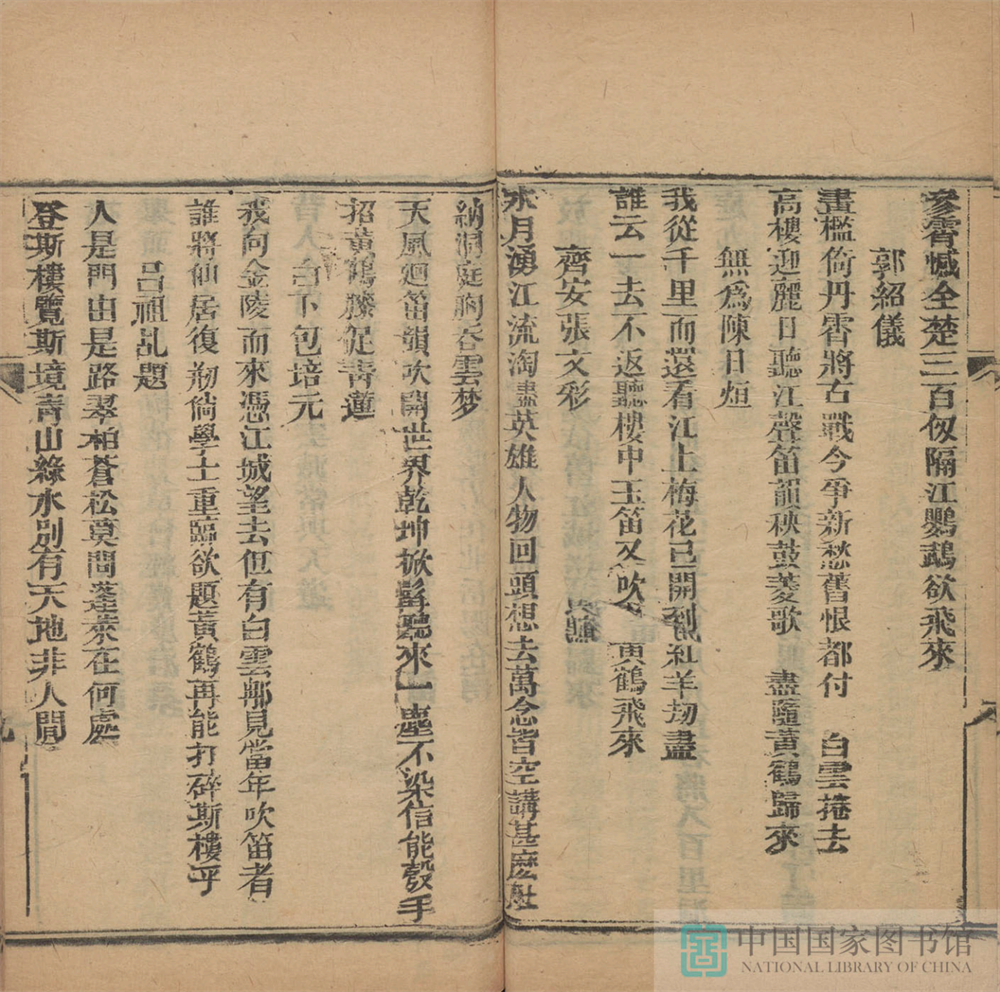 參霄憾全楚三百仭隔江鸚鵡欲飛來
郭紹儀
畫檻倚丹霄將古戰今爭新愁舊恨都付 白雲捲去
高樓迎麗日聽江聲笛韻秧鼓菱歌 盡隨黃鶴歸來
無爲陳日烜
我從千里而還看江上梅花已開到紅羊刼盡
誰云一去不返聽樓中玉笛又吹 黃鶴飛來
齊安張文彩
水月湧江流淘盡英雄人物回頭想去萬念皆空講甚麽肚
納洞庭胸吞雲梦
天風廻笛韻吹開世界乾坤掀髯聽來一塵不染信能彀手
招黃鶴藤促靑蓮
白下包培元
我向金陵而來憑江城望去但有白雲那見當年吹笛者
誰將仙居復刱倘學士重臨欲題黃鶴再能打碎斯樓乎
呂祖乩題
人是門由是路翠柏蒼松莫問蓬萊在何處
登斯樓覽斯境靑山綠水別有天地非人間
中国国家图书馆
NATIONAL LIBRARY OF CHINA